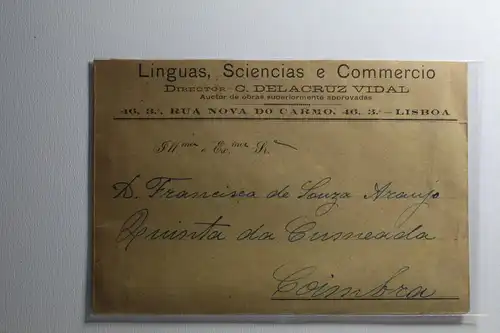 Linguas, Sciencias e Commercio
DIRECTOR—C. DELACRUZ VIDAL
Auctor de obras superiormente approvadas
46, 3.º, RUA NOVA DO CARMO, 46, 3.º—LISBOA
Ill.mos e Ex.mos Sr.
D. Francisca de Souza Araujo
Quinta da Cumeada
Coimbra